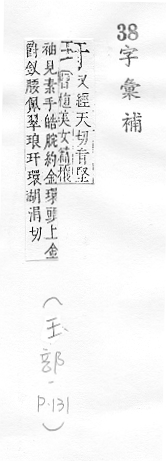 38字彙補
又經天切音堅
曹植美女篇攘
袖見素手皓腕約金環頭上金
爵釵腰佩翠琅玕環湖涓切
(玉部-P.131)